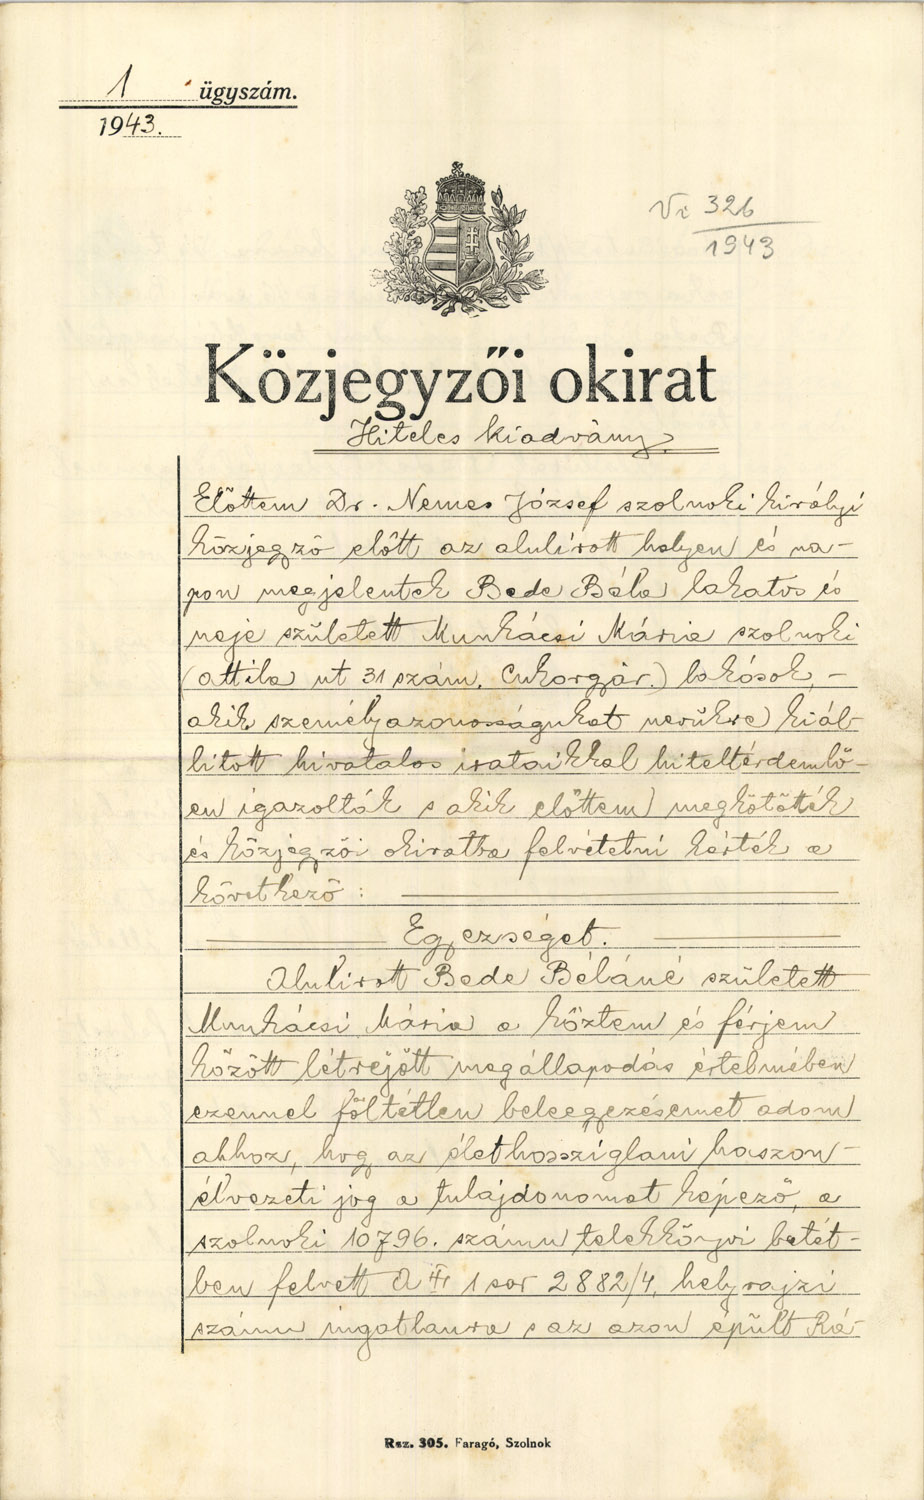 1 ügyszám.
1943.
Vi 326
1943
Közjegyzői okirat
Hiteles kiadvány.
Előttem Dr. Nemes József szolnoki királyi
közjegyző előtt az alulirott helyen és na-
pon megjelentek Bede Béla lakatos és
neje született Munkácsi Mária szolnoki
(attila ut 31 szám. Cukorgyár.) lakósok, -
akik személyazonosságukat nevükre kiál-
litott hivatalos irataikkal hiteltérdemlő-
en igazolták s akik előttem megkötötték
és közjegyzői okiratba felvétetni kérték a
következő :
Egyezséget.
Alulirott Bede Béláné született
Munkácsi Mária a köztem és férjem
között létrejött megállapodás értelmében
ezennel föltétlen beleegyezésemet adom
ahhoz, hogy az élethossziglani haszon-
élvezeti jog a tulajdonomat képező, a
szolnoki 10796. számu telekkönyvi betét-
ben felvett A II 1 sor 2882/4, helyrajzi
számu ingatlanra s az azon épült Rá-
Rsz. 305. Faragó, Szolnok